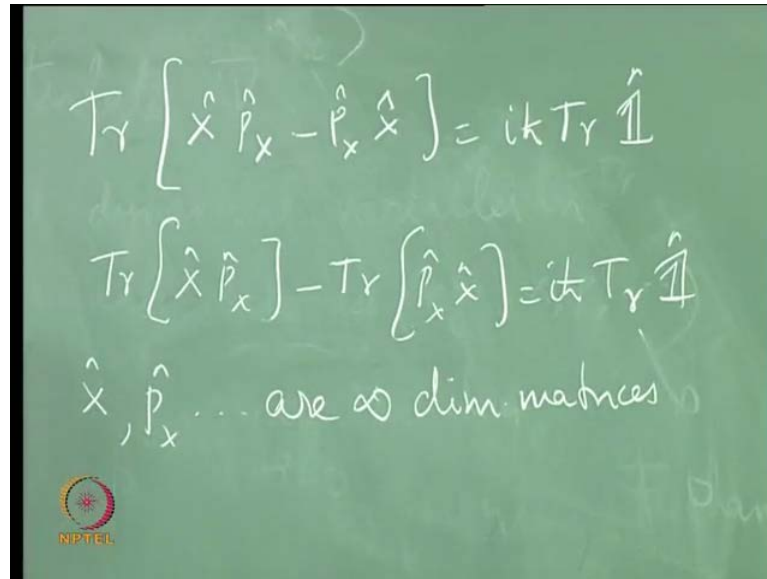 Tr [ x̂ p̂ₓ - p̂ₓ x̂ ] = iħ Tr 𝟙̂
Tr [ x̂ p̂ₓ ] - Tr [ p̂ₓ x̂ ] = iħ Tr 𝟙̂
x̂, p̂ₓ ... are ∞ dim. matrices
NPTEL